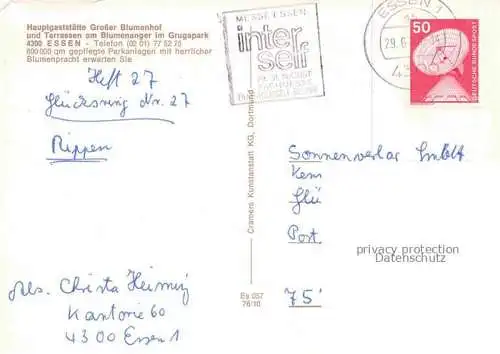 Hauptgaststätte Großer Blumenhof
und Terrassen am Blumenanger im Grugapark
4300 ESSEN - Telefon (02 01) 77 52 75
600 000 qm gepflegte Parkanlagen mit herrlicher
Blumenpracht erwarten Sie
Heft 27
Glücksring Nr. 27
Rippen
Abs. Christa
Kantorie 60
4300 Essen 1
Cramers Kunstanstalt KG, Dortmund
Es 057
76/10
MESSE ESSEN
inter
self
ESSEN 1
29.6.
43
50
DEUTSCHE BUNDESPOST
Sonnenverlag GmbH
Kenn
Glü
Post
75
privacy protection
Datenschutz